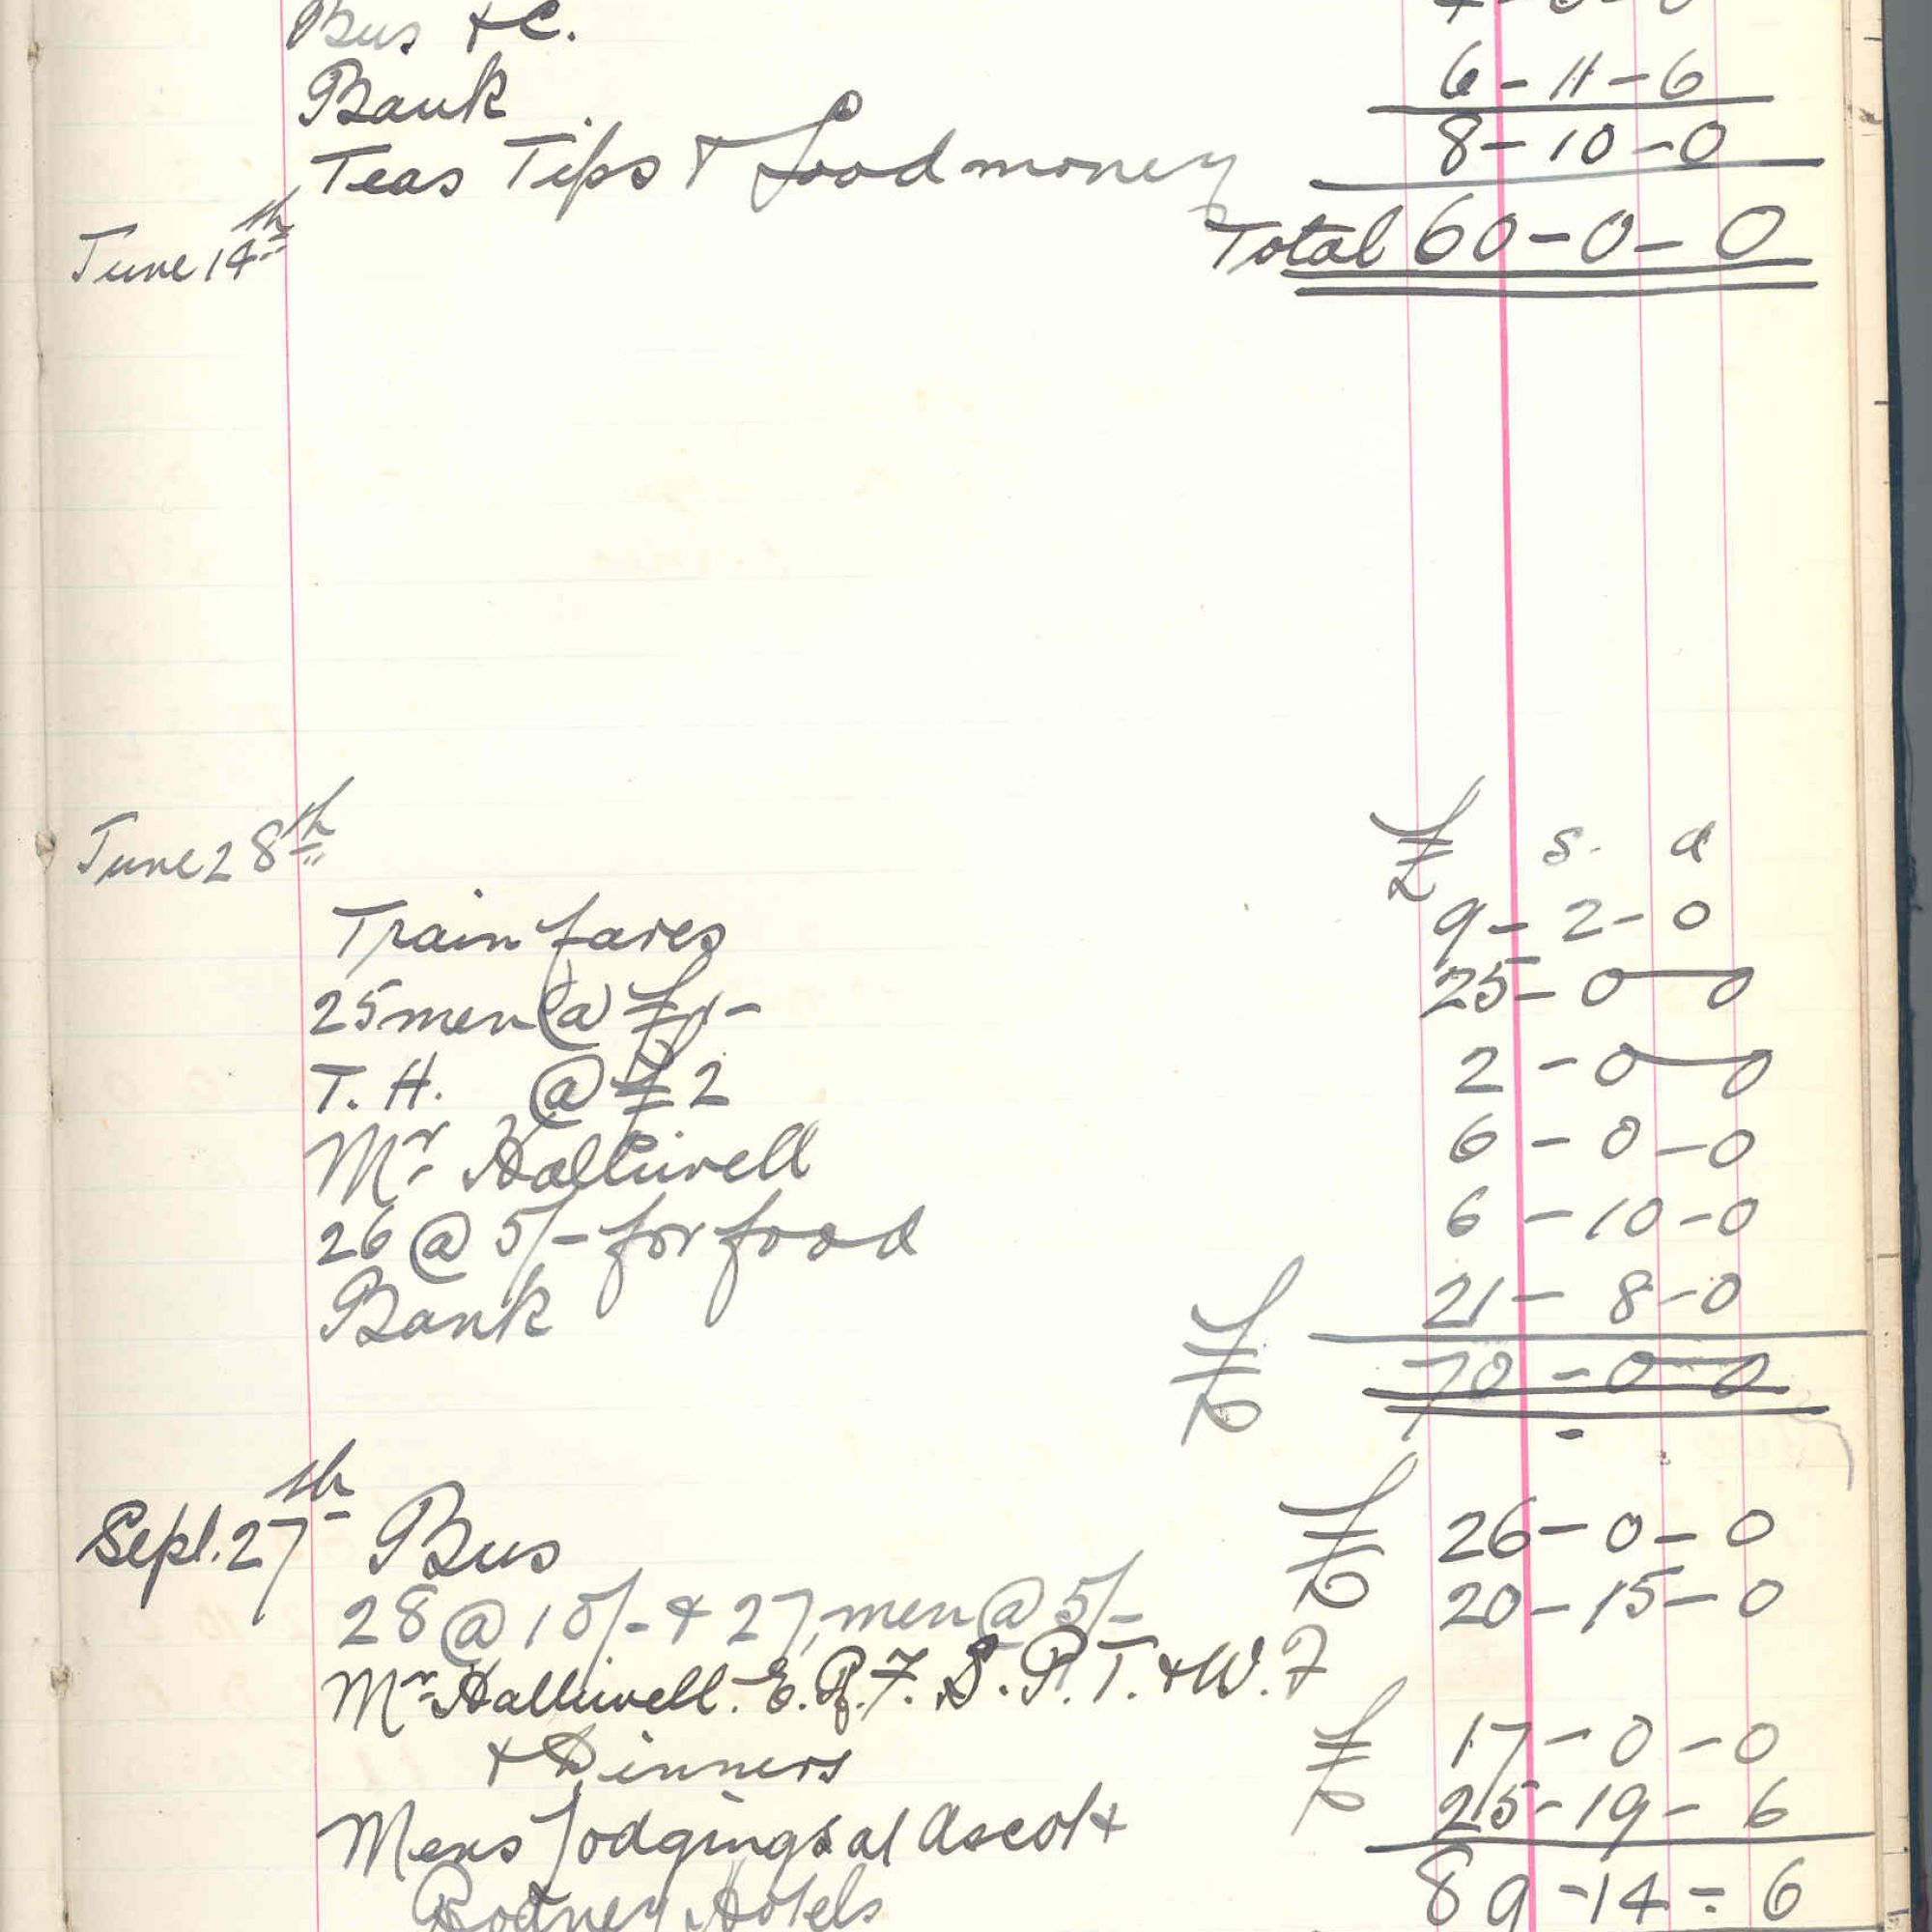 Bus &C.
Bank 6-11-6
Teas Tips & Food money 8-10-0
June 14th Total 60-0-0
June 28th £ s. d
Train fares 9-2-0
25 men @ £1- 25-0-0
T. H. @ £2 2-0-0
Mr Halliwell 6-0-0
26 @ 5/- for food 6-10-0
Bank 21-8-0
£ 70-0-0
Sept. 27th Bus £ 26-0-0
28 @ 10/- & 27 men @ 5/- 20-15-0
Mr Halliwell. E.R.F. S.P.T. & W.F
& Dinners £ 17-0-0
Mens lodgings at Ascot & 25-19-6
Rodney Hotels 89-14-6